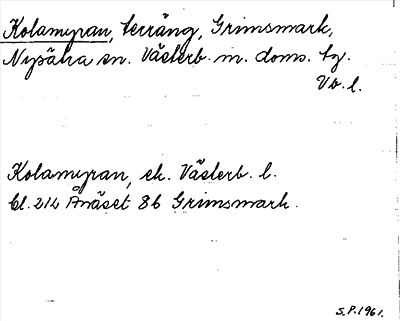 Kolamyran, terräng, Grimsmark,
Nysätra sn. Västerb. m. doms. tg.
Vb. l.
Kolamyran, ek. Västerb. l.
bl. 212 Ånäset 8b Grimsmark.
S.P. 1961.